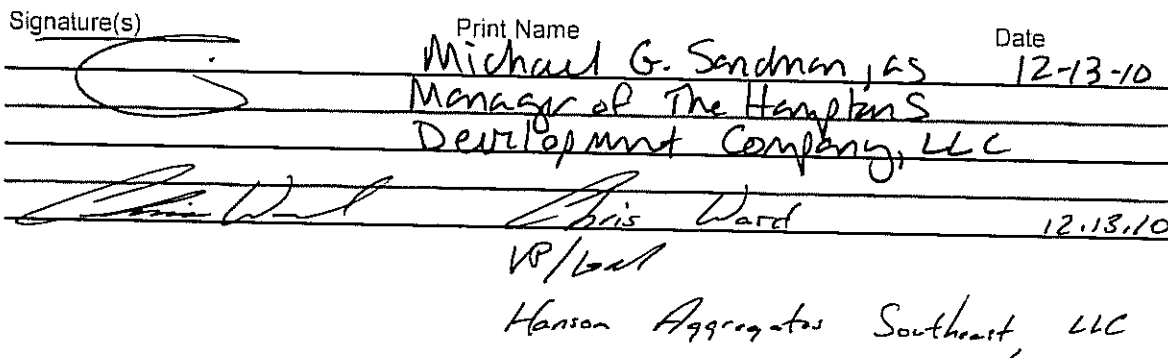 Signature(s) Print Name Date
Michael G. Sandman, as 12-13-10
Manager of The Hamptons
Development Company, LLC
Chris Ward Chris Ward 12.13.10
VP/
Hanson Aggregates Southeast, LLC